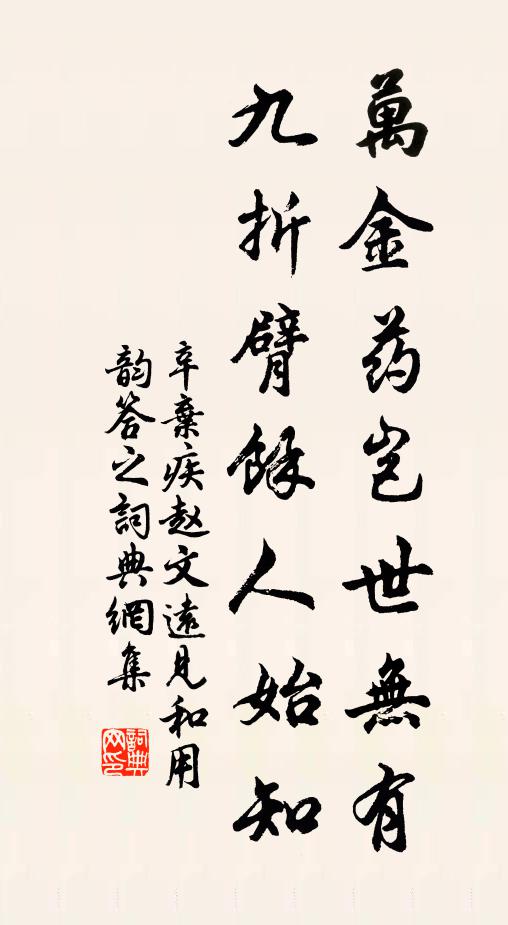 萬金药岂世無有
九折臂餘人始知
辛棄疾赵文遠見和用
韵答之詞典網集
詞典
网印